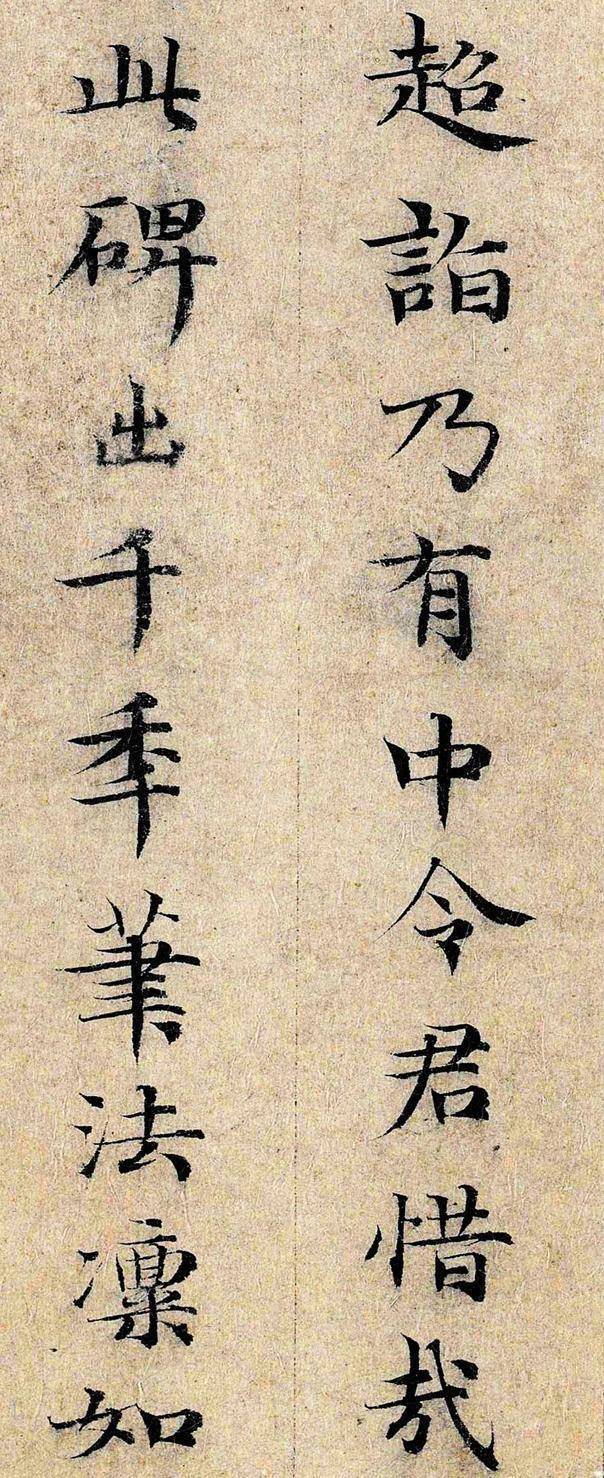 超詣乃有中令君惜哉
此碑出千季筆法凜如